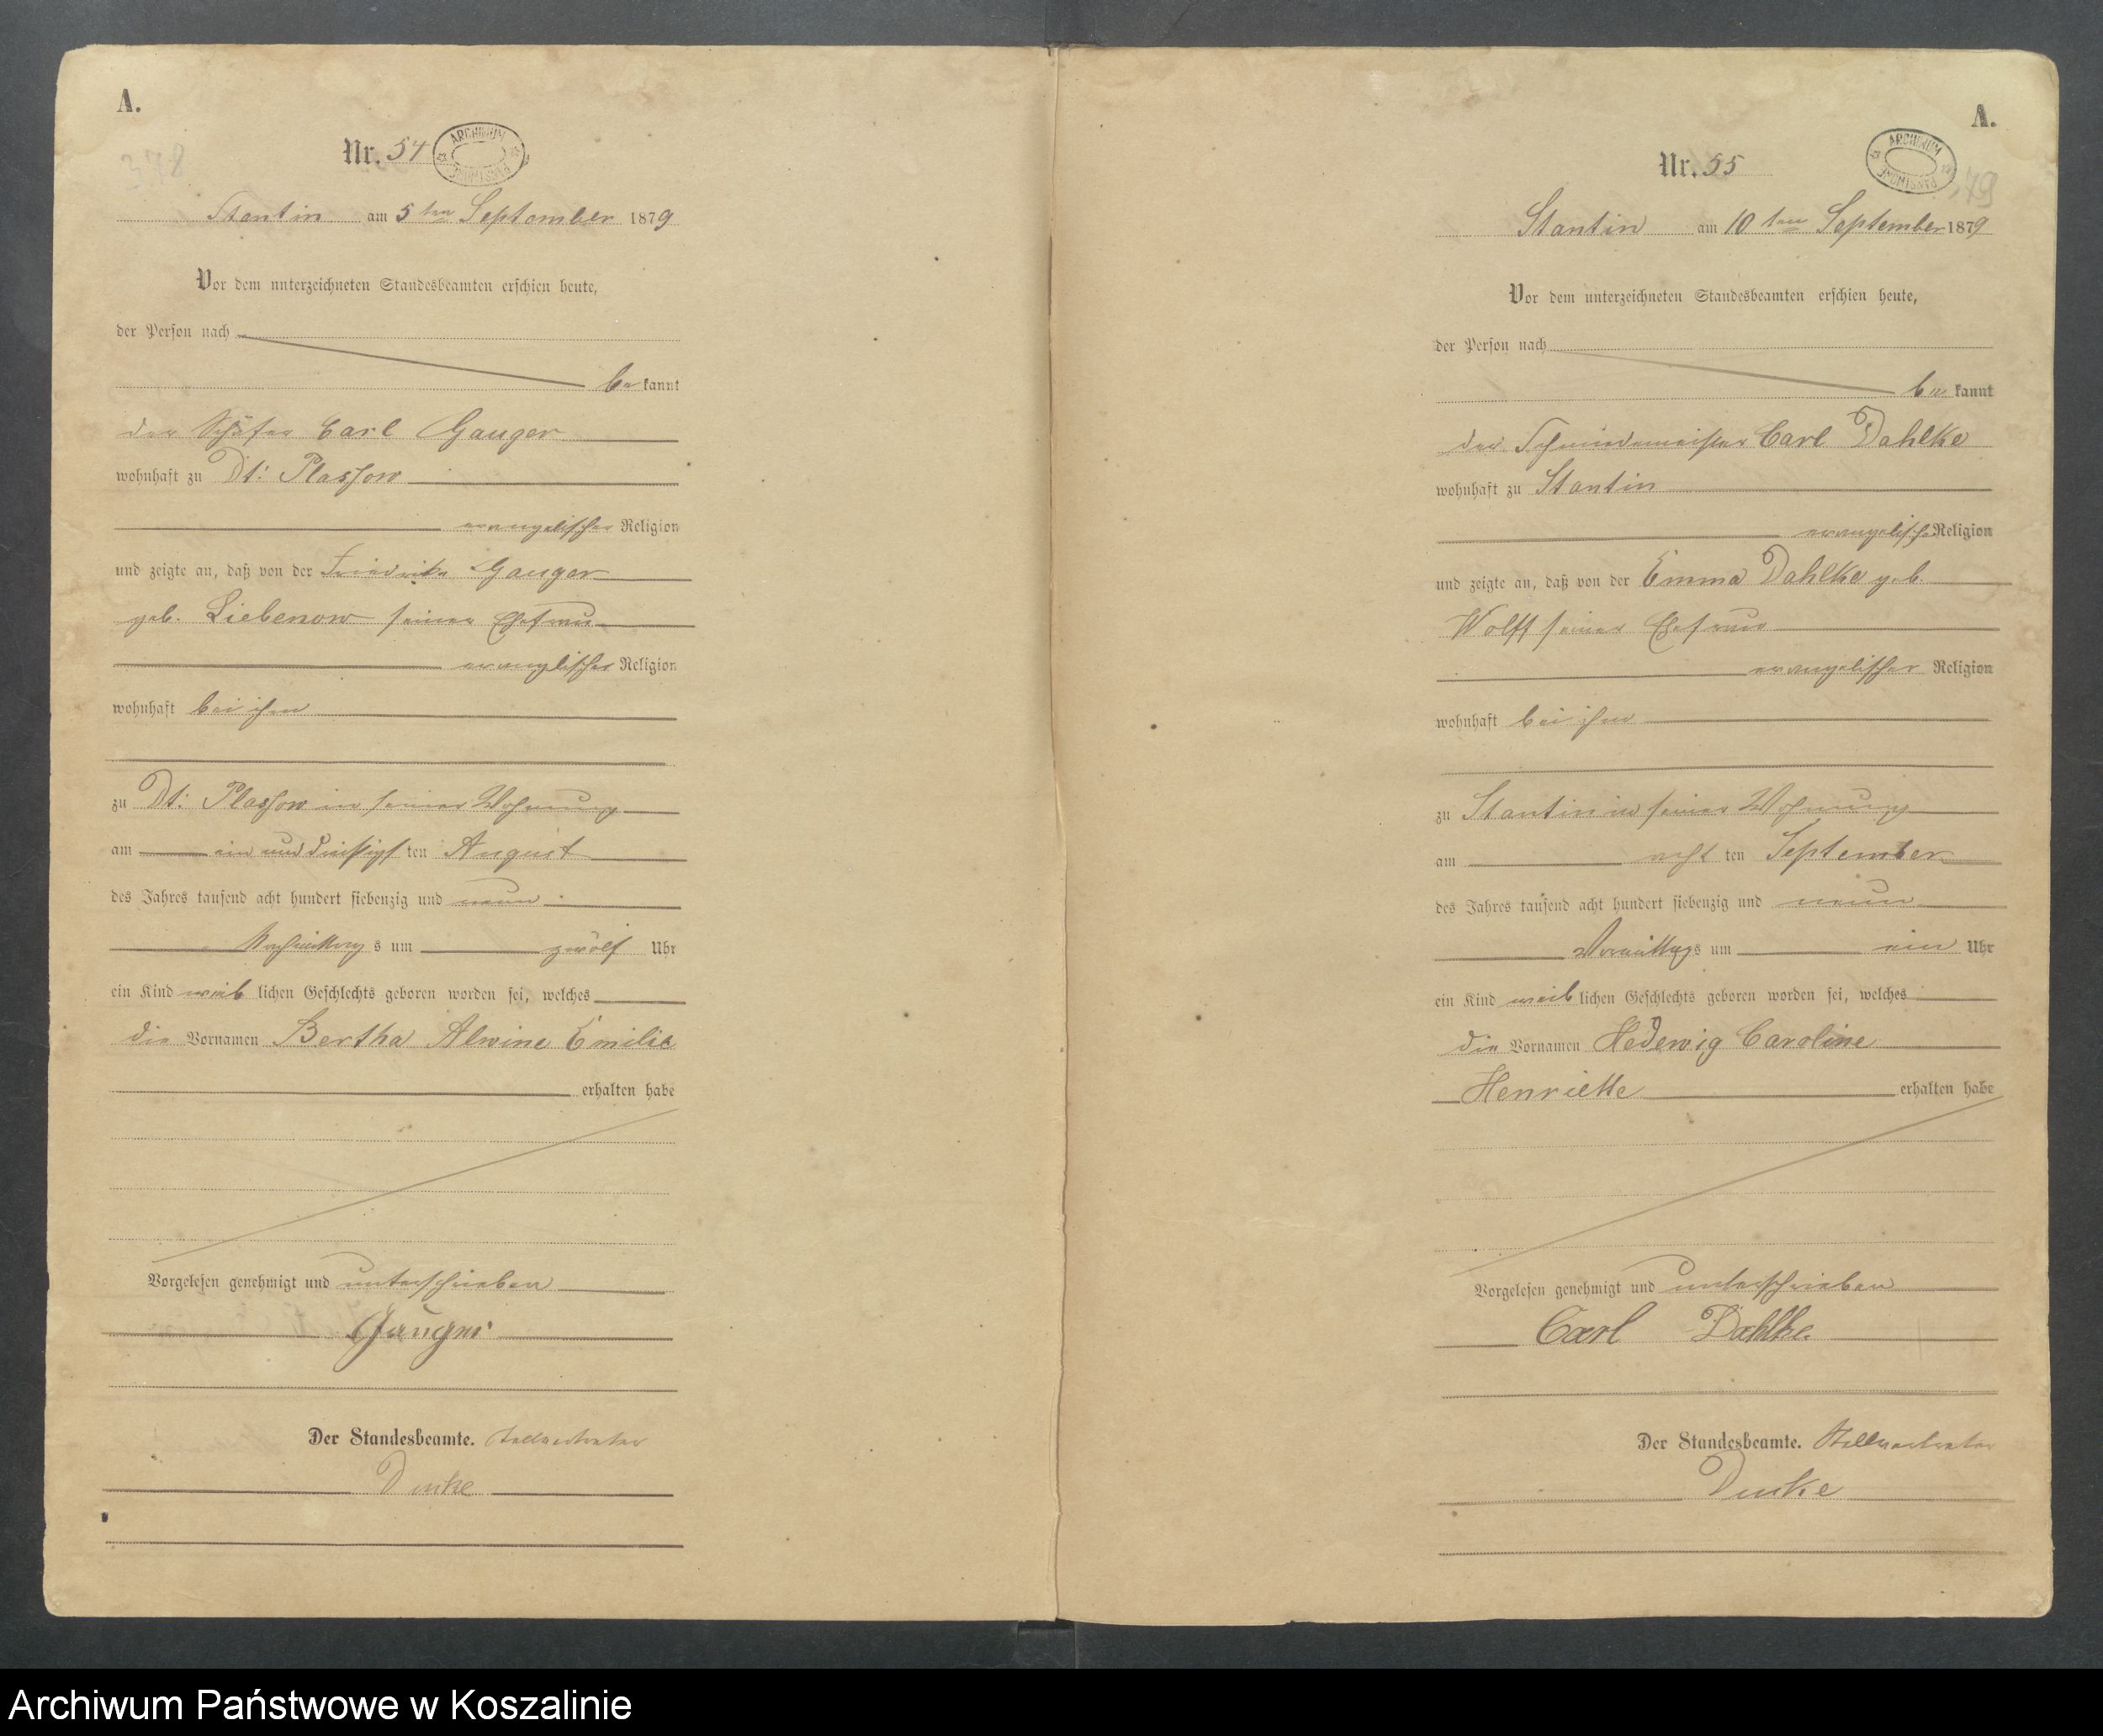 A.
Nr. 54
ARCHIWUM
378
Stantin am 5ten September 1879
Vor dem unterzeichneten Standesbeamten erschien heute,
der Person nach
bekannt
der Schäfer Carl Gauger
wohnhaft zu Dt: Plassow
evangelischer Religion
und zeigte an, daß von der Friedrike Gauger
geb. Liebenow seiner Ehefrau
evangelischer Religion
wohnhaft bei ihm
zu Dt: Plassow in seiner Wohnung
am ein und dreißigsten August
des Jahres tausend acht hundert siebenzig und neun
Nachmittags um zwölf Uhr
ein Kind weiblichen Geschlechts geboren worden sei, welches
die Vornamen Bertha Alwine Emilie
erhalten habe
Vorgelesen genehmigt und unterschrieben
Gauger
Der Standesbeamte. Stellvertreter
A.
Nr. 55
ARCHIWUM
79
Stantin am 10ten September 1879
Vor dem unterzeichneten Standesbeamten erschien heute,
der Person nach
bekannt
der Schmiedemeister Carl Dahlke
wohnhaft zu Stantin
evangelischer Religion
und zeigte an, daß von der Emma Dahlke geb.
Wolff seiner Ehefrau
evangelischer Religion
wohnhaft bei ihm
zu Stantin in seiner Wohnung
am achten September
des Jahres tausend acht hundert siebenzig und neun
Vormittags um ein Uhr
ein Kind weiblichen Geschlechts geboren worden sei, welches
die Vornamen Hedewig Caroline
Henriette erhalten habe
Vorgelesen genehmigt und unterschrieben
Carl Dahlke
Der Standesbeamte. Stellvertreter
Archiwum Państwowe w Koszalinie